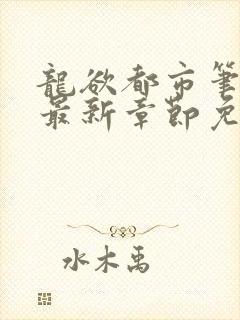 龍欲都市筆
最新章節免
水木禹